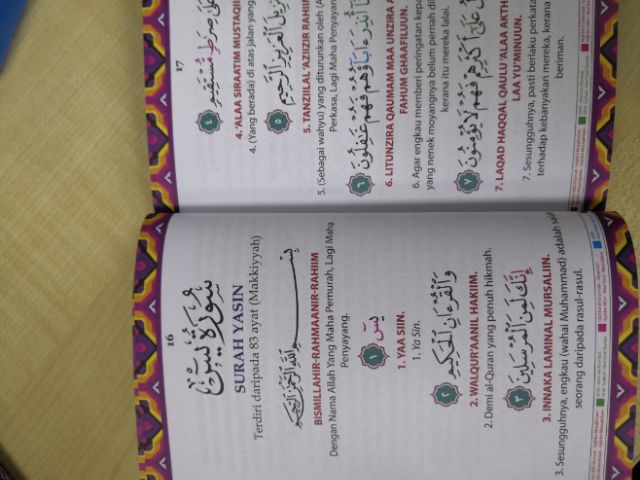 16
سورة يس
SURAH YASIN
Terdiri daripada 83 ayat (Makkiyyah)
بسم الله الرحمن الرحيم
BISMILLAHIR-RAHMAANIR-RAHIIM
Dengan Nama Allah Yang Maha Pemurah, Lagi Maha
Penyayang.
يسٓ ١
1. YAA SIIN.
1. Ya Sin.
وَالْقُرْءَانِ الْحَكِيمِ ٢
2. WALQUR'AANIL HAKIIM.
2. Demi al-Quran yang penuh hikmah.
إِنَّكَ لَمِنَ الْمُرْسَلِينَ ٣
3. INNAKA LAMINAL MURSALIIN.
3. Sesungguhnya, engkau (wahai Muhammad) adalah
seorang daripada rasul-rasul.
17
عَلَىٰ صِرَٰطٍ مُّسْتَقِيمٍ ٤
4. 'ALAA SIRAATIM MUSTAQII
4. (Yang berada) di atas jalan yang
تَنزِيلَ الْعَزِيزِ الرَّحِيمِ ٥
5. TANZIILAL 'AZIIZIR RAHII
5. (Sebagai wahyu) yang diturunkan oleh
Perkasa, Lagi Maha Penyayang
أُنذِرَ ءَابَآؤُهُمْ فَهُمْ غَٰفِلُونَ ٦
6. LITUNZIRA QAUMAM MAA UNZIRA A
FAHUM GHAAFILUUN.
6. Agar engkau memberi peringatan
yang nenek moyangnya belum pernah
kerana itu mereka lalai.
عَلَىٰٓ أَكْثَرِهِمْ فَهُمْ لَا يُؤْمِنُونَ ٧
7. LAQAD HAQQAL QAULU 'ALAA AKTH
LAA YU'MINUUN.
7. Sesungguhnya, pasti berlaku
terhadap kebanyakan mereka, kerana
beriman.